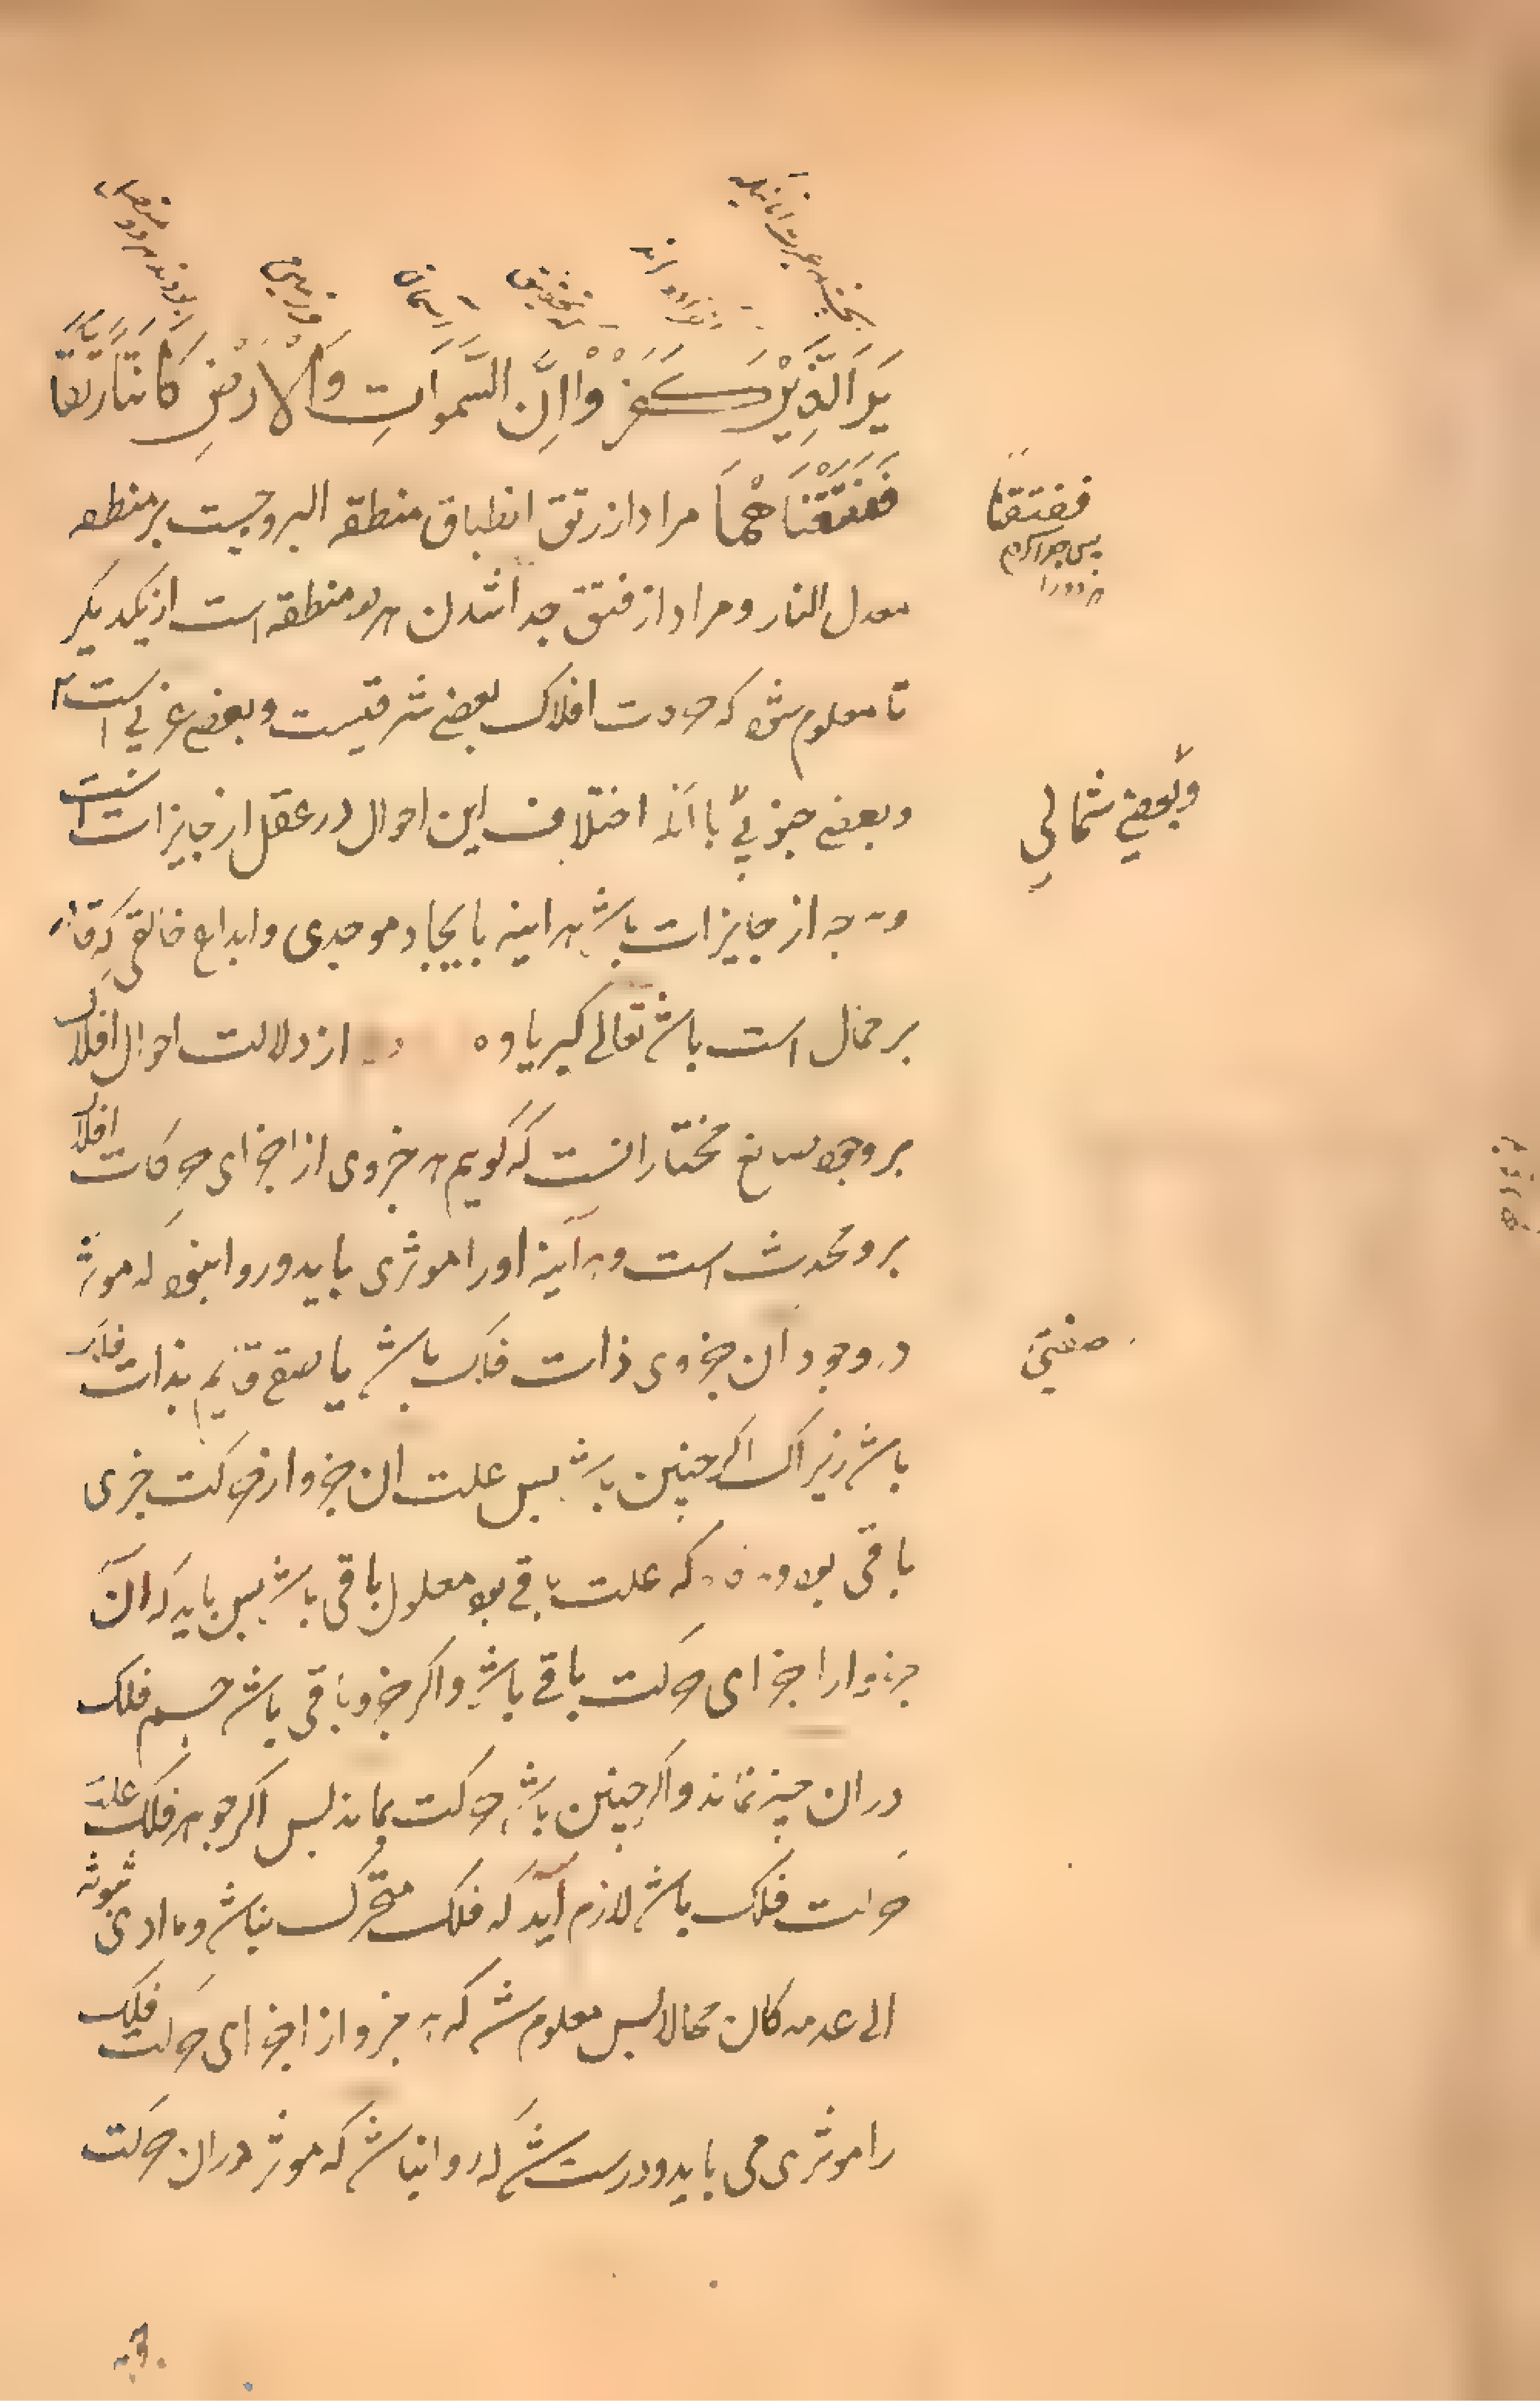 یَرَ الَّذِیْنَ كَفَرُوْا اِنَّ السَّمٰوَاتِ وَالْاَرْضِ كَانَتَا رَتْقًا
فَفَتَقْنَاهُمَا مراد از رتق انطباق منطقه البروجست بر منطقه
معدل النهار و مراد از فتق جدا شدن هر دو منطقه است از یکدیگر
تا معلوم شود که حرکت افلاک بعضی شرقیست و بعضی غربی است
و بعضی جنوبی با آنکه اختلاف این احوال در عقل از جایزات است
و هرچه از جایزات باشد هر اینه بایجاد موجدی و ابداع خالقی که قادر
بر کمال است باشد تعالی کبریاوه از دلالت احوال افلاک
بر وجود صانع مختار انست که گویم هر جزوی از اجزای حرکات افلاک
بر و محدث است و هر آینه او را موثری باید و روا نبود که موثر
در وجود ان جزوی ذات فلک باشد یا صفتی قایم بذات فلک
باشد زیراک اگر چنین باشد پس علت ان جزو از حرکت جزی
باقی بود و که علت باقی بود معلول باقی باشد پس باید که ان
جزو از اجزای حرکت باقی باشد و اگر جزو باقی باشد جسم فلک
در ان حیز نماند و اگر چنین باشد حرکت نماند پس اگر جوهر فلک علت
حرکت فلک باشد لازم آید که فلک متحرک نباشد و ما ادی ثبوته
الی عدمه کان محالا پس معلوم شد که هر جزو از اجزای حرکت فلک
را موثری می باید و درست شد که روا نباشد که موثر در ان حرکت
ففتقنا
پس جدا کردیم
هر دو را
و بعضی شمالی
صفتی